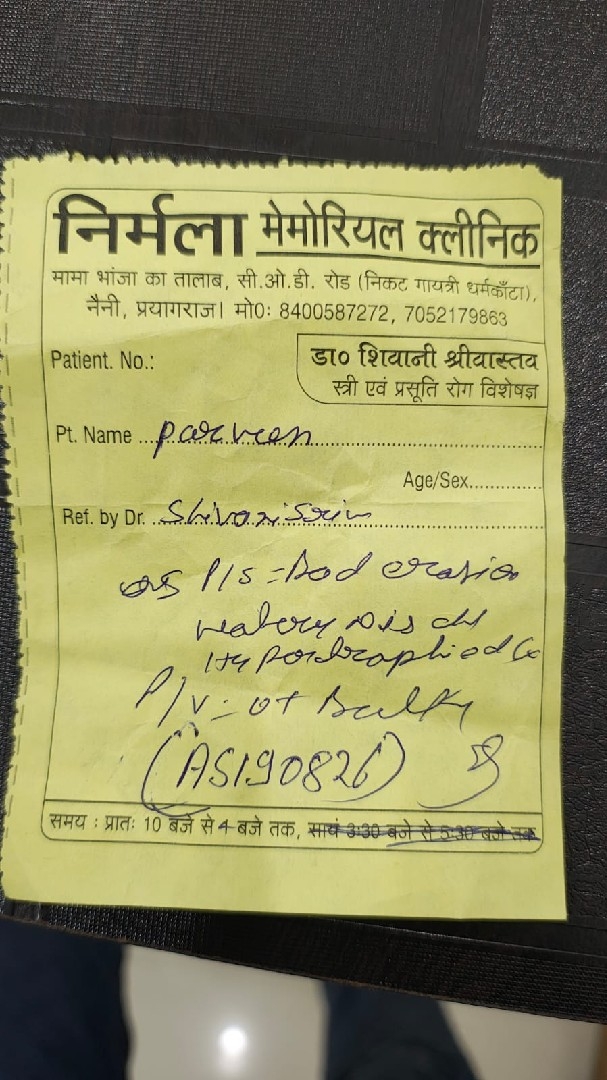 निर्मला मेमोरियल क्लीनिक
मामा भांजा का तालाब, सी.ओ.डी. रोड (निकट गायत्री धर्मकाँटा),
नैनी, प्रयागराज। मो0: 8400587272, 7052179863
Patient. No.:
डा० शिवानी श्रीवास्तव
स्त्री एवं प्रसूति रोग विशेषज्ञ
Pt. Name parveen
Age/Sex
Ref. by Dr. Shivani
P/S = erosion
watery Disch
Hypertrophied Cx
P/V = ut Bulky
(AS190826)
समय : प्रातः 10 बजे से 4 बजे तक, सायं 3:30 बजे से 5:30 बजे तक